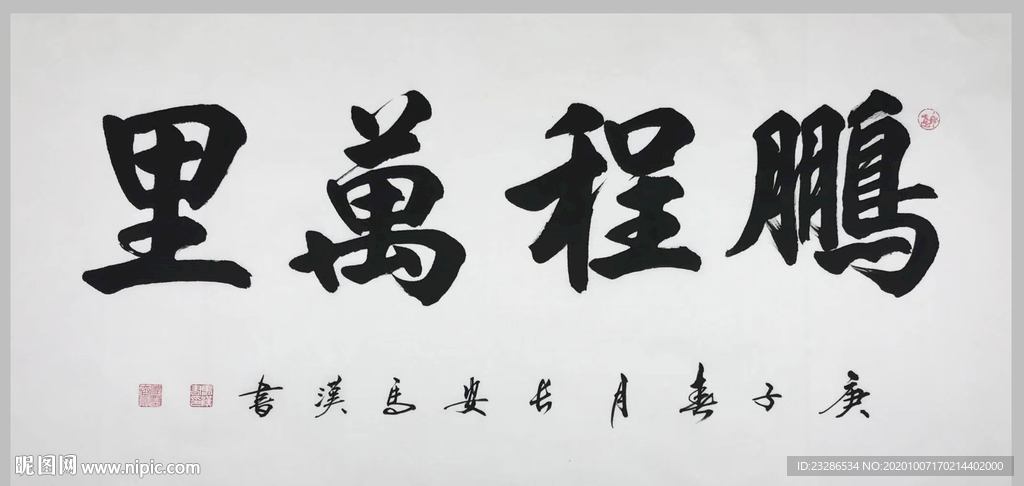 鵬程萬里
庚子春月長安馬漢書
昵图网 www.nipic.com
ID:23286534 NO:20201007170214402000